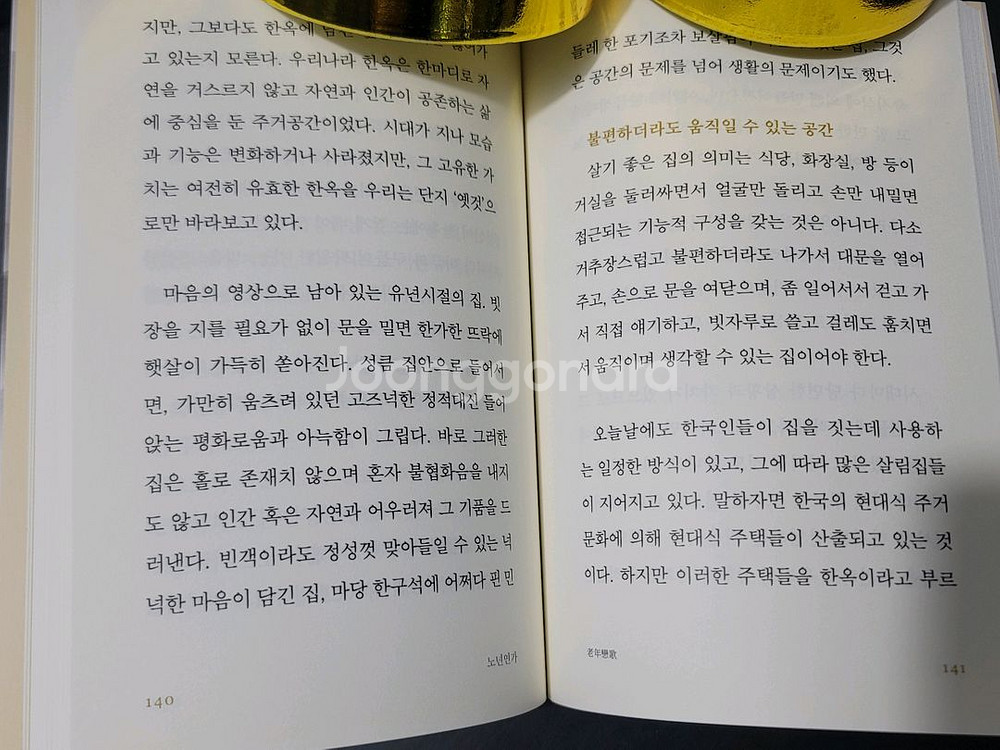 지만, 그보다도 한옥에
고 있는지 모른다. 우리나라 한옥은 한마디로 자
연을 거스르지 않고 자연과 인간이 공존하는 삶
에 중심을 둔 주거공간이었다. 시대가 지나 모습
과 기능은 변화하거나 사라졌지만, 그 고유한 가
치는 여전히 유효한 한옥을 우리는 단지 ‘옛것’으
로만 바라보고 있다.
마음의 영상으로 남아 있는 유년시절의 집. 빗
장을 지를 필요가 없이 문을 밀면 한가한 뜨락에
햇살이 가득히 쏟아진다. 성큼 집안으로 들어서
면, 가만히 움츠려 있던 고즈넉한 정적대신 들어
앉는 평화로움과 아늑함이 그립다. 바로 그러한
집은 홀로 존재치 않으며 혼자 불협화음을 내지
도 않고 인간 혹은 자연과 어우러져 그 기품을 드
러낸다. 빈객이라도 정성껏 맞아들일 수 있는 넉
넉한 마음이 담긴 집, 마당 한구석에 어쩌다 핀 민
노년연가
140
들레 한 포기조차 보살핌 그것
은 공간의 문제를 넘어 생활의 문제이기도 했다.
불편하더라도 움직일 수 있는 공간
살기 좋은 집의 의미는 식당, 화장실, 방 등이
거실을 둘러싸면서 얼굴만 돌리고 손만 내밀면
접근되는 기능적 구성을 갖는 것은 아니다. 다소
거추장스럽고 불편하더라도 나가서 대문을 열어
주고, 손으로 문을 여닫으며, 좀 일어서서 걷고 가
서 직접 얘기하고, 빗자루로 쓸고 걸레도 훔치면
서 움직이며 생각할 수 있는 집이어야 한다.
오늘날에도 한국인들이 집을 짓는데 사용하
는 일정한 방식이 있고, 그에 따라 많은 살림집들
이 지어지고 있다. 말하자면 한국의 현대식 주거
문화에 의해 현대식 주택들이 산출되고 있는 것
이다. 하지만 이러한 주택들을 한옥이라고 부르
老年戀歌
141
Joonggonara